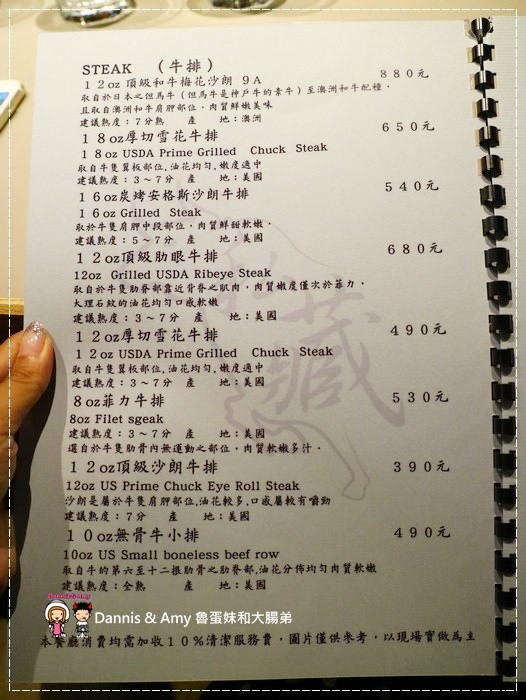 STEAK （牛排）
12oz 頂級和牛梅花沙朗 9A 880元
取自於日本之但馬牛（但馬牛是神戶牛的素牛）至澳洲和牛配種，
且取自澳洲和牛肩胛部位，肉質鮮嫩美味
建議熟度：7分熟 產 地：澳洲
18oz厚切雪花牛排 650元
18oz USDA Prime Grilled Chuck Steak
取自牛隻翼板部位,油花均勻,嫩度適中
建議熟度：3～7分 產 地：美國
16oz炭烤安格斯沙朗牛排 540元
16oz Grilled Steak
取於牛隻肩胛中段部位，肉質鮮甜軟嫩。
建議熟度：5～7分 產 地：美國
12oz頂級肋眼牛排 680元
12oz Grilled USDA Ribeye Steak
取自於牛隻肋脊部靠近背脊之肌肉，肉質嫩度僅次於菲力，
大理石紋的油花均勻口感軟嫩
建議熟度：3～7分 產 地：美國
12oz厚切雪花牛排 490元
12oz USDA Prime Grilled Chuck Steak
取自牛隻翼板部位,油花均勻,嫩度適中
建議熟度：3～7分 產 地：美國
8oz菲力牛排 530元
8oz Filet sgeak
建議熟度：3～7分 產 地：美國
選自於牛隻肋骨內無運動之部位，肉質軟嫩多汁。
12oz頂級沙朗牛排 390元
12oz US Prime Chuck Eye Roll Steak
沙朗是屬於牛隻肩胛部位,油花較多,口感屬較有嚼勁
建議熟度：7分 產 地：美國
10oz無骨牛小排 490元
10oz US Small boneless beef row
取自牛的第六至十二根肋骨之肋脊部,油花分佈均勻肉質軟嫩
建議熟度：全熟 產 地：美國
Dannis & Amy 魯蛋妹和大腸弟
本餐廳消費均需加收10%清潔服務費，圖片僅供參考，以現場實做為主